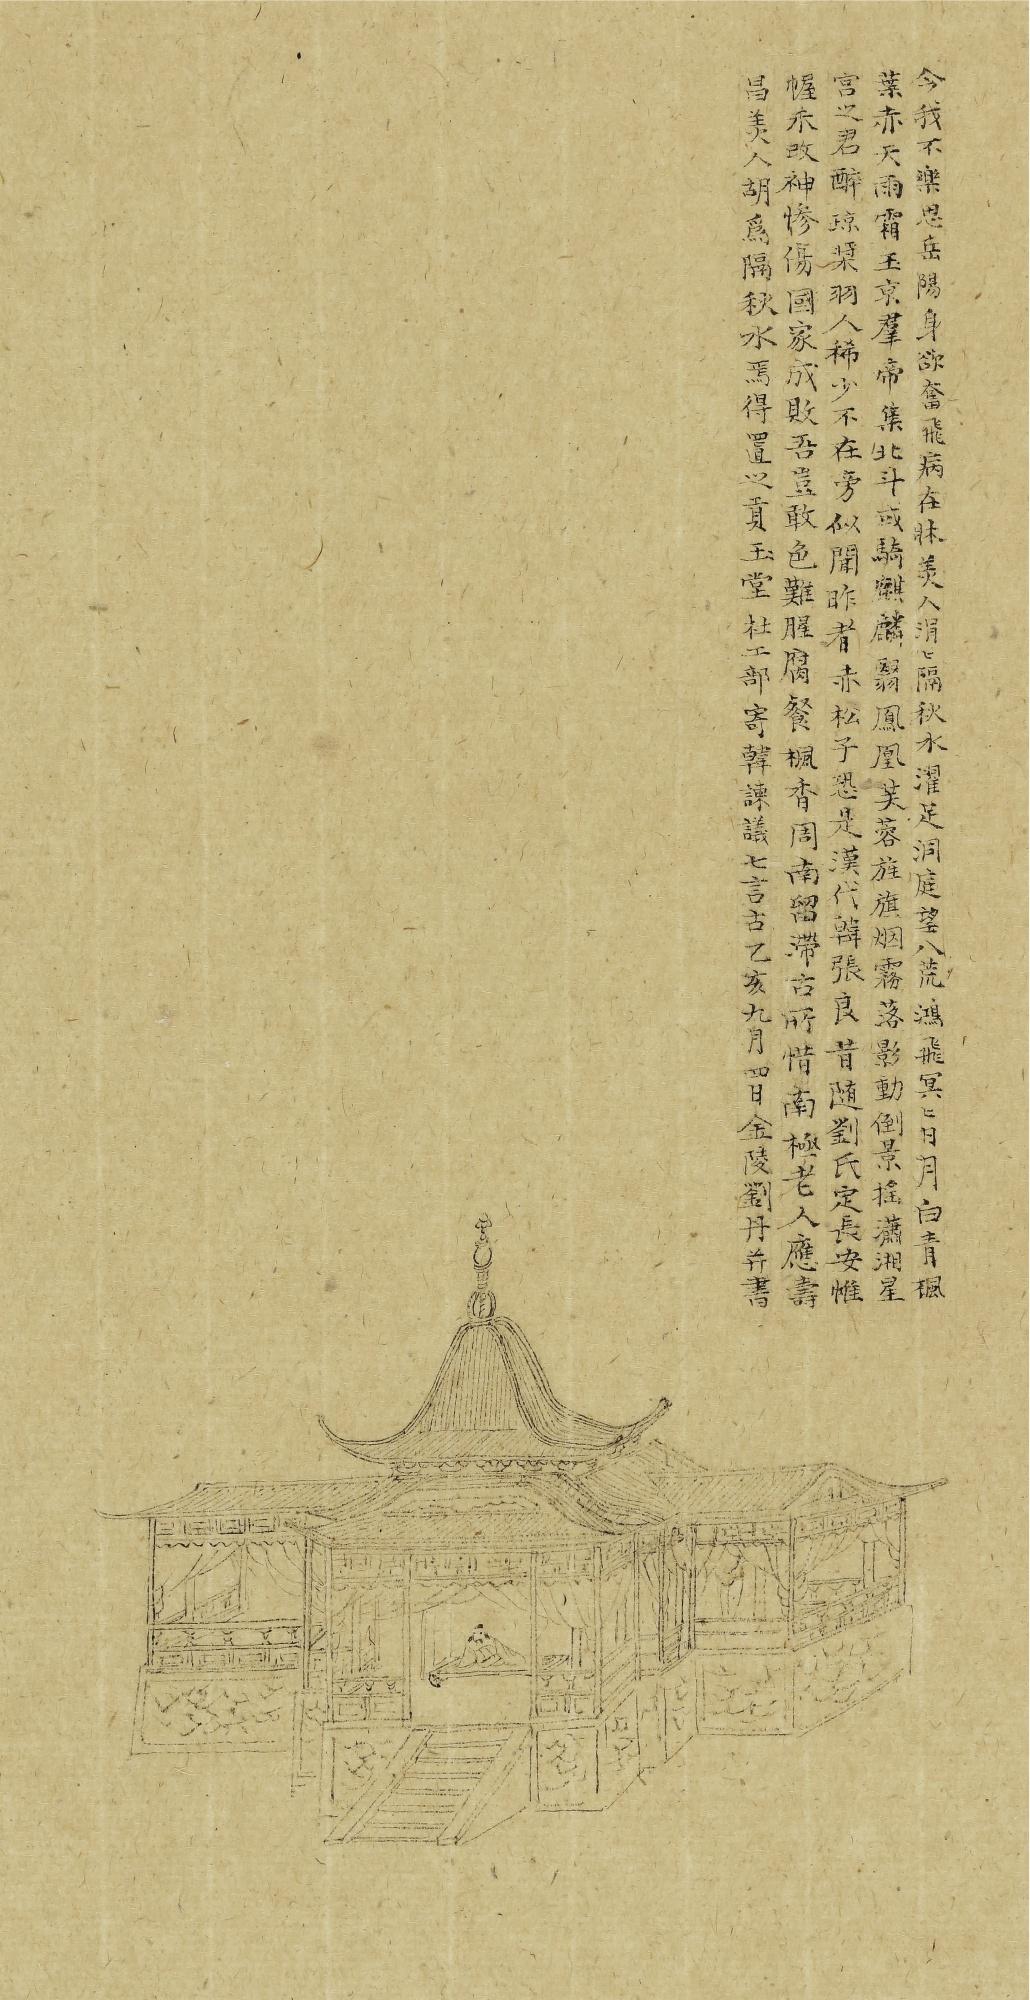 今我不樂思岳陽身欲奮飛病在牀美人涓〻隔秋水濯足洞庭望八荒鴻飛冥〻日月白青楓
葉赤天雨霜玉京羣帝集北斗或騎麒麟翳鳳凰芙蓉旌旗烟霧落影動倒景搖瀟湘星
宮之君醉瓊漿羽人稀少不在旁似聞昨者赤松子恐是漢代韓張良昔随劉氏定長安帷
幄未改神慘傷國家成敗吾豈敢色難腥腐餐楓香周南留滯古所惜南極老人應壽
昌美人胡爲隔秋水焉得置之貢玉堂杜工部寄韓諫議七言古乙亥九月四日金陵劉丹并書